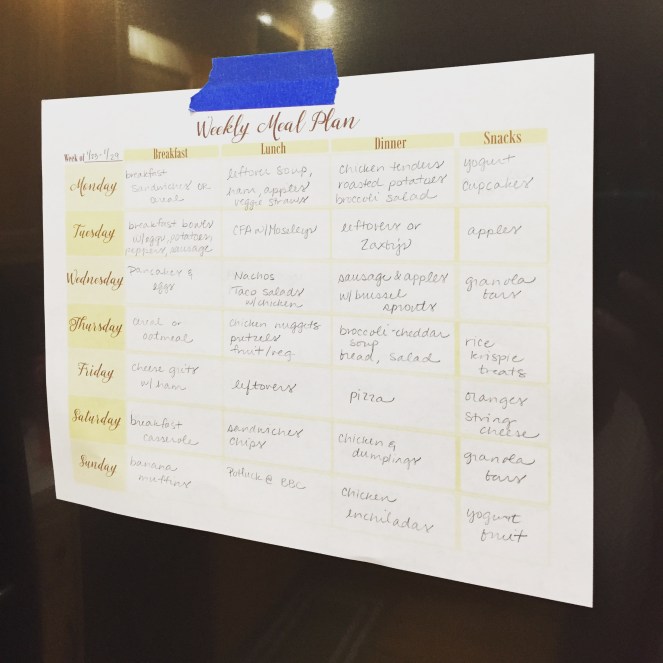 Weekly Meal Plan
Week of 1/23-1/29
Breakfast
Lunch
Dinner
Snacks
Monday
breakfast
sandwiches or
cereal
leftover soup,
ham, apples
veggie straws
chicken tenders
roasted potatoes
broccoli salad
yogurt
cupcakes
Tuesday
breakfast bowls
w/eggs, potatoes
peppers, sausage
CFA w/Moseleys
leftovers or
Zaxbys
apples
Wednesday
pancakes &
eggs
Nachos
Taco salads
w/chicken
sausage & apples
w/ brussel
sprouts
granola
bars
Thursday
cereal or
oatmeal
chicken nuggets
pretzels
fruit/veg
broccoli-cheddar
soup
bread, salad
rice
krispie
treats
Friday
cheese grits
w/ ham
leftovers
pizza
oranges
string
cheese
Saturday
breakfast
casserole
sandwiches
chips
chicken &
dumplings
granola
bars
Sunday
banana
muffins
Potluck @ BBC
chicken
enchiladas
yogurt
fruit